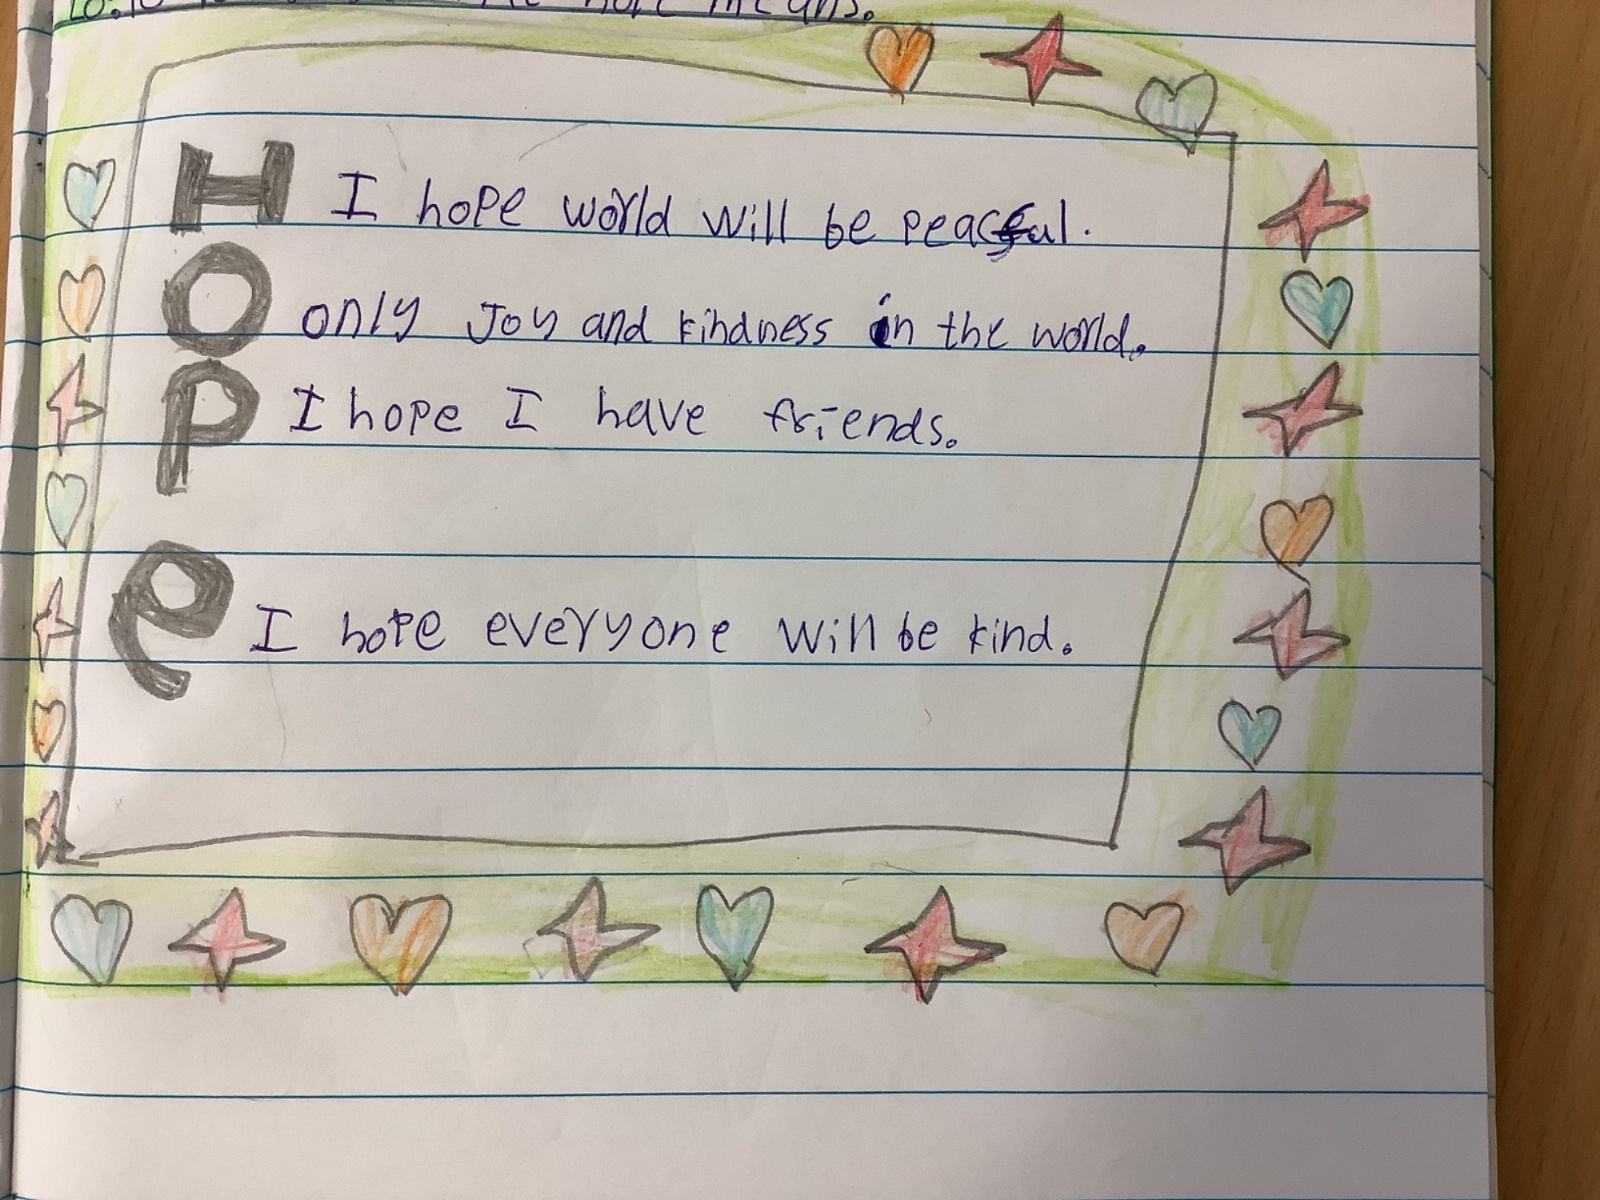 means.
H I hope world will be peacful.
O only Joy and kindness in the world.
P I hope I have friends.
e I hope everyone will be kind.